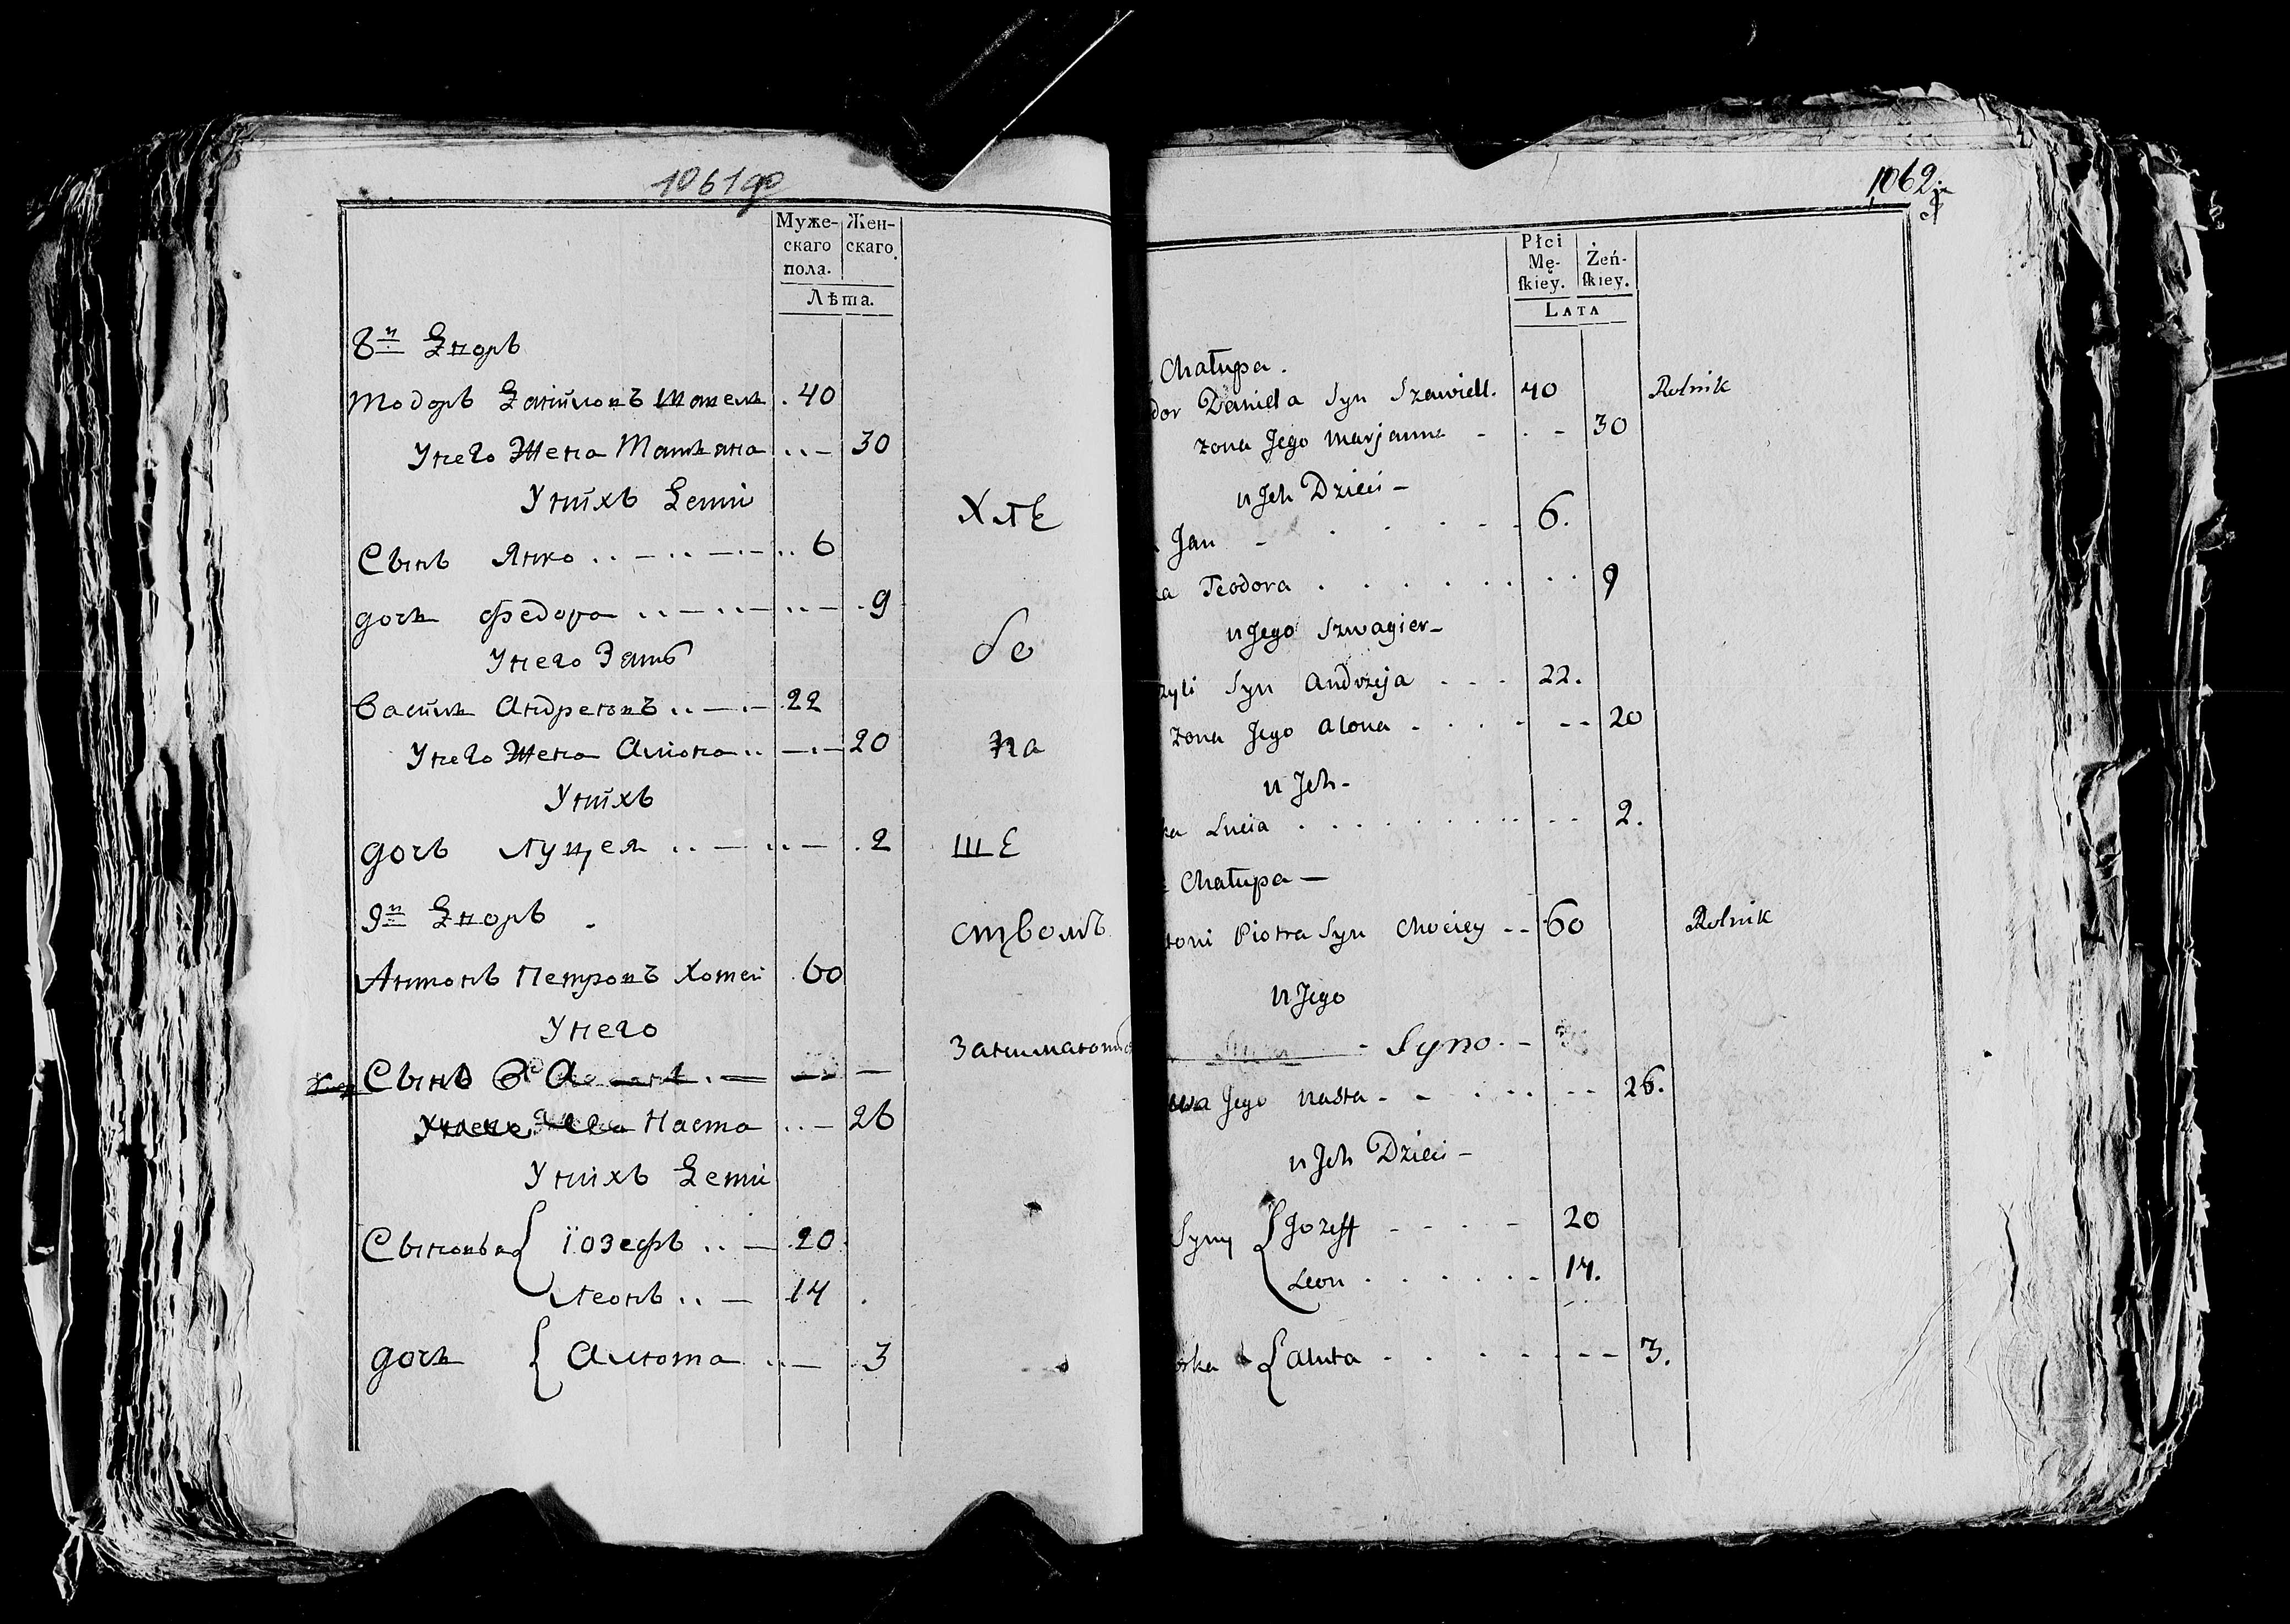 1061 до
Муже-
скаго
пола.
Жен-
скаго.
Лѣта.
8й Дворъ
Тодоръ Данiиловъ Шавель . 40
Унего Жена Маръяна .. — 30
Унiихъ Дети
Сынъ Янко .. — .. — .. 6
дочь Федора .. — .. — .. — . 9
Унего Зять
Василь Андреювъ .. — . — 22
Унего Жена Алiона .. — . — 20
Унiихъ
дочь Луцея .. — .. — . 2
9й Дворъ
Антонъ Петровъ Хотей . 60
Унего
Сынъ
Наста .. — 26
Унiихъ Дети
Сыновья { Iозефъ .. — 20
Леонъ .. — 14
дочь { Алюта .. — . 3
ХлЕ
бо
па
ШЕ
ствомъ
1062
Płci
Mę-
ſkiey.
Żeń-
ſkiey.
LATA
Chałupa.
dor Daniela Syn Szawiell. 40 Rolnik
żona Jego Marjanna - . - 30
u Jch Dzieci -
Jan - . . . - - 6.
ka Teodora . . . . . . . 9
u Jego Szwagier -
zyli Syn Andrzeja . . . 22.
żona Jego Alona . . . - - - 20
u Jch -
ka Lucia . . . . . . . - - 2.
Chałupa —
toni Piotra Syn Chociey - - 60 Rolnik
u Jego
- Syno. -
Jego Nasta - - . . . - - 26.
u Jch Dzieci -
Syny { Jozeff - - - - 20
Leon . . . . . - 14.
orka { Aluta - . . - - - - 3.